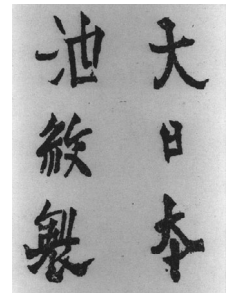 大日本
池紋製